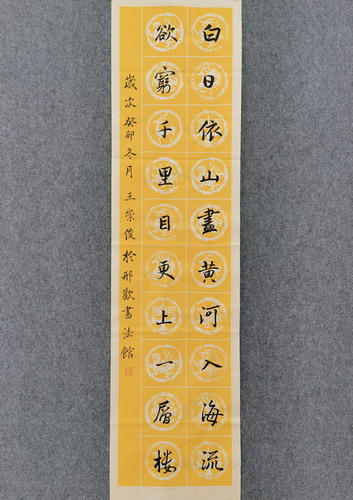 白日依山盡黄河入海流
欲窮千里目更上一層楼
歲次癸卯冬月王崇俊於邢歡書法館